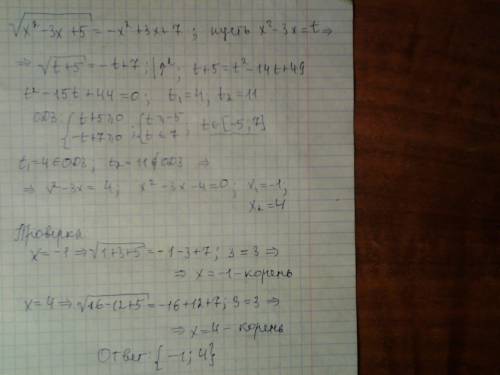 √(x²-3x+5) = -x²+3x+7 ; пусть x²-3x=t ⇒
⇒ √(t+5) = -t+7 ; |↑² ; t+5=t²-14t+49
t²-15t+44=0 ; t₁=4, t₂=11
ОДЗ: { t+5≥0 ; { t≥-5 ; t∈[-5;7]
{ -t+7≥0 ; { t≤7
t₁=4∈ОДЗ, t₂=11∉ОДЗ ⇒
⇒ x²-3x=4 ; x²-3x-4=0 ; x₁=-1,
x₂=4
Проверка
x=-1 ⇒ √(1+3+5) = -1-3+7 ; 3=3 ⇒
⇒ x=-1-корень
x=4 ⇒ √(16-12+5) = -16+12+7 ; 3=3 ⇒
⇒ x=4-корень
Ответ: {-1; 4}